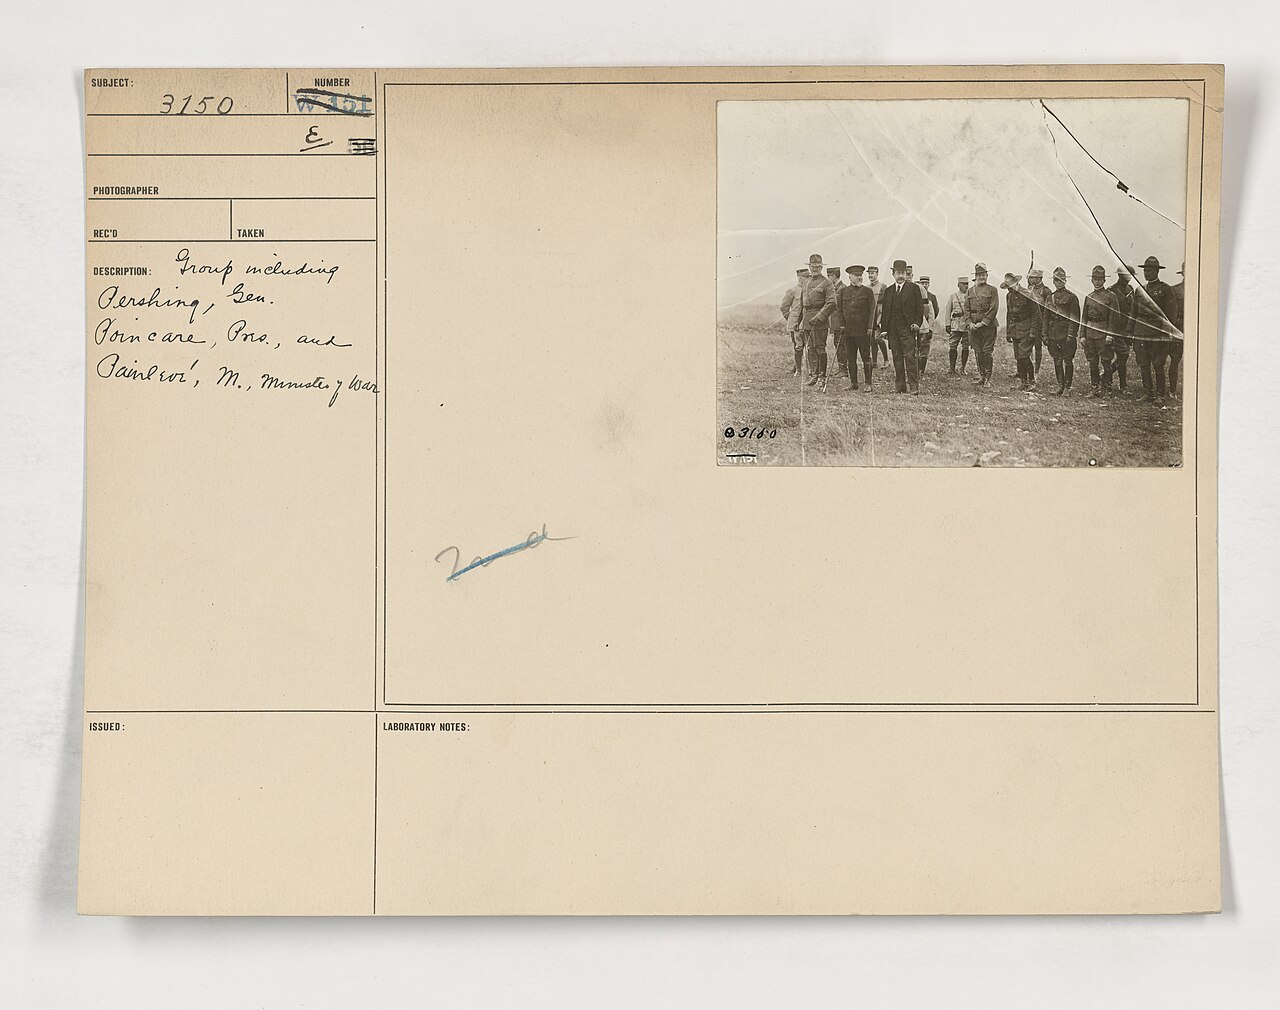 SUBJECT:
3150
NUMBER
W 151
E
PHOTOGRAPHER
REC'D
TAKEN
DESCRIPTION: Group including
Pershing, Gen.
Poincare, Pres., and
Painlevé, M., Minister of War
3150
ISSUED:
LABORATORY NOTES: